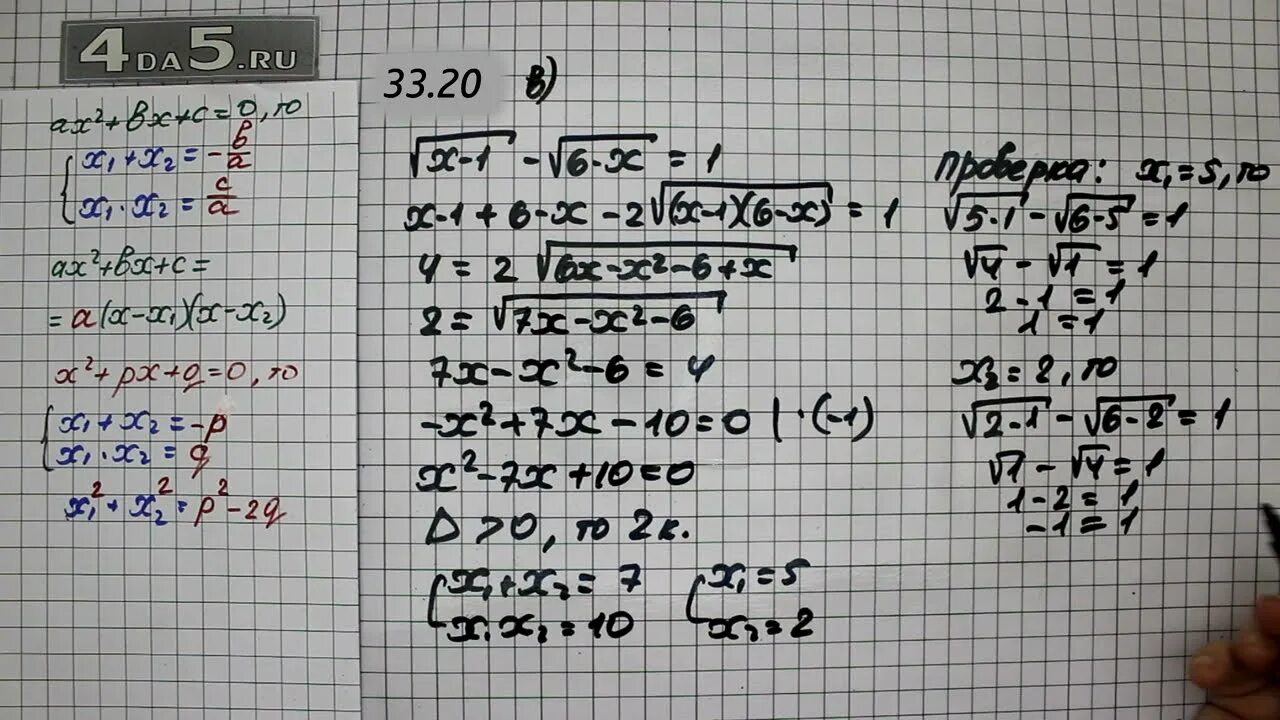 4DA5.RU
ax²+bx+c=0, то
x₁+x₂=-b/a
x₁·x₂=c/a
ax²+bx+c=
=a(x-x₁)(x-x₂)
x²+px+q=0, то
x₁+x₂=-p
x₁·x₂=q
x₁²+x₂²=p²-2q
33.20 в)
√(x-1) - √(6-x) = 1
x-1+6-x-2√((x-1)(6-x)) = 1
4 = 2√(6x-x²-6+x)
2 = √(7x-x²-6)
7x-x²-6 = 4
-x²+7x-10=0 | ·(-1)
x²-7x+10=0
D>0, то 2к.
x₁+x₂=7 x₁=5
x₁x₂=10 x₂=2
Проверка: x₁=5, то
√(5-1) - √(6-5) = 1
√4 - √1 = 1
2-1 = 1
1 = 1
x₂=2, то
√(2-1) - √(6-2) = 1
√1 - √4 = 1
1-2 = 1
-1 = 1